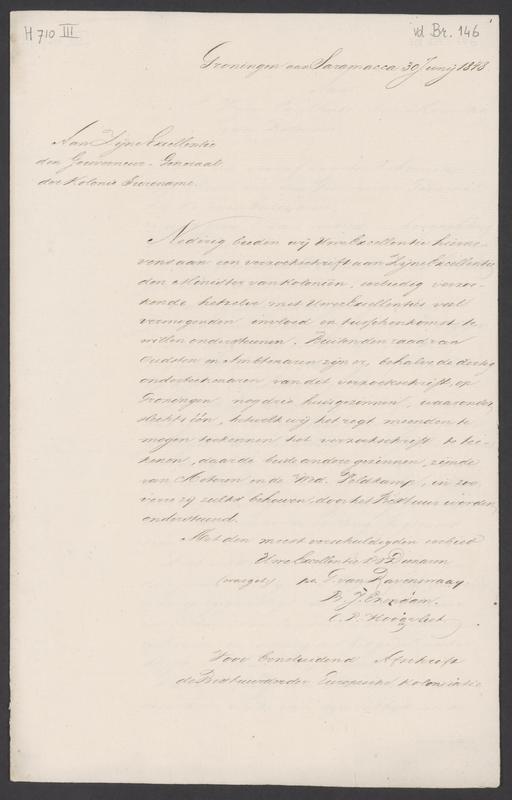 H 710 III
vd Br. 146
Groningen aan Saramacca 30 Junij 1848
Aan Zijne Excellentie
den Gouverneur-Generaal
der Kolonie Suriname.
Nederig bieden wij Uwe Excellentie hierne-
vens aan een verzoekschrift aan Zijne Excellentie
den Minister van Koloniën, eerbiedig verzoe-
kende, hetzelve met Uwe Excellenties veel
vermogenden invloed en tusschenkomst te
willen ondersteunen. Buiten den raad van
Oudsten en Ambtenaren zijn er, behalve de dertig
onderteekenaren van dit verzoekschrift, op
Groningen nog drie huisgezinnen, waaronder
slechts één, hetwelk wij het regt meenden te
mogen toekennen tot verzoekschrift te tee-
kenen, daar de beide andere gezinnen, zijnde
van Asteren en de Wed. Veldkamp, in zoo
verre zij zulks behoeven, door het Bestuur worden
ondersteund.
Met den meest verschuldigden eerbied
Uwe Excellentie's D Dienaren
(was get.) A. van Ravenswaay
B. J. Enzdam.
C. P. Hoogvliet
Voor Eensluidend Afschrift
de Bestuurder der Europesche Kolonisatie